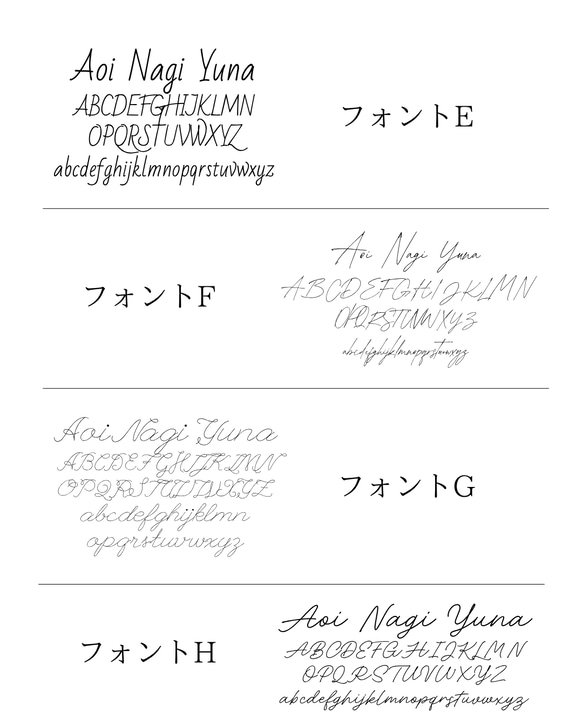 Aoi Nagi Yuna
ABCDEFGHIJKLMN
OPQRSTUVWXYZ
abcdefghijklmnopqrstuvwxyz
フォントE
フォントF
Aoi Nagi Yuna
ABCDEFGHIJKLMN
OPQRSTUVWXYZ
abcdefghijklmnopqrstuvwxyz
Aoi Nagi Yuna
ABCDEFGHIJKLMN
OPQRSTUVWXYZ
abcdefghijklmn
opqrstuvwxyz
フォントG
フォントH
Aoi Nagi Yuna
ABCDEFGHIJKLMN
OPQRSTUVWXYZ
abcdefghijklmnopqrstuvwxyz